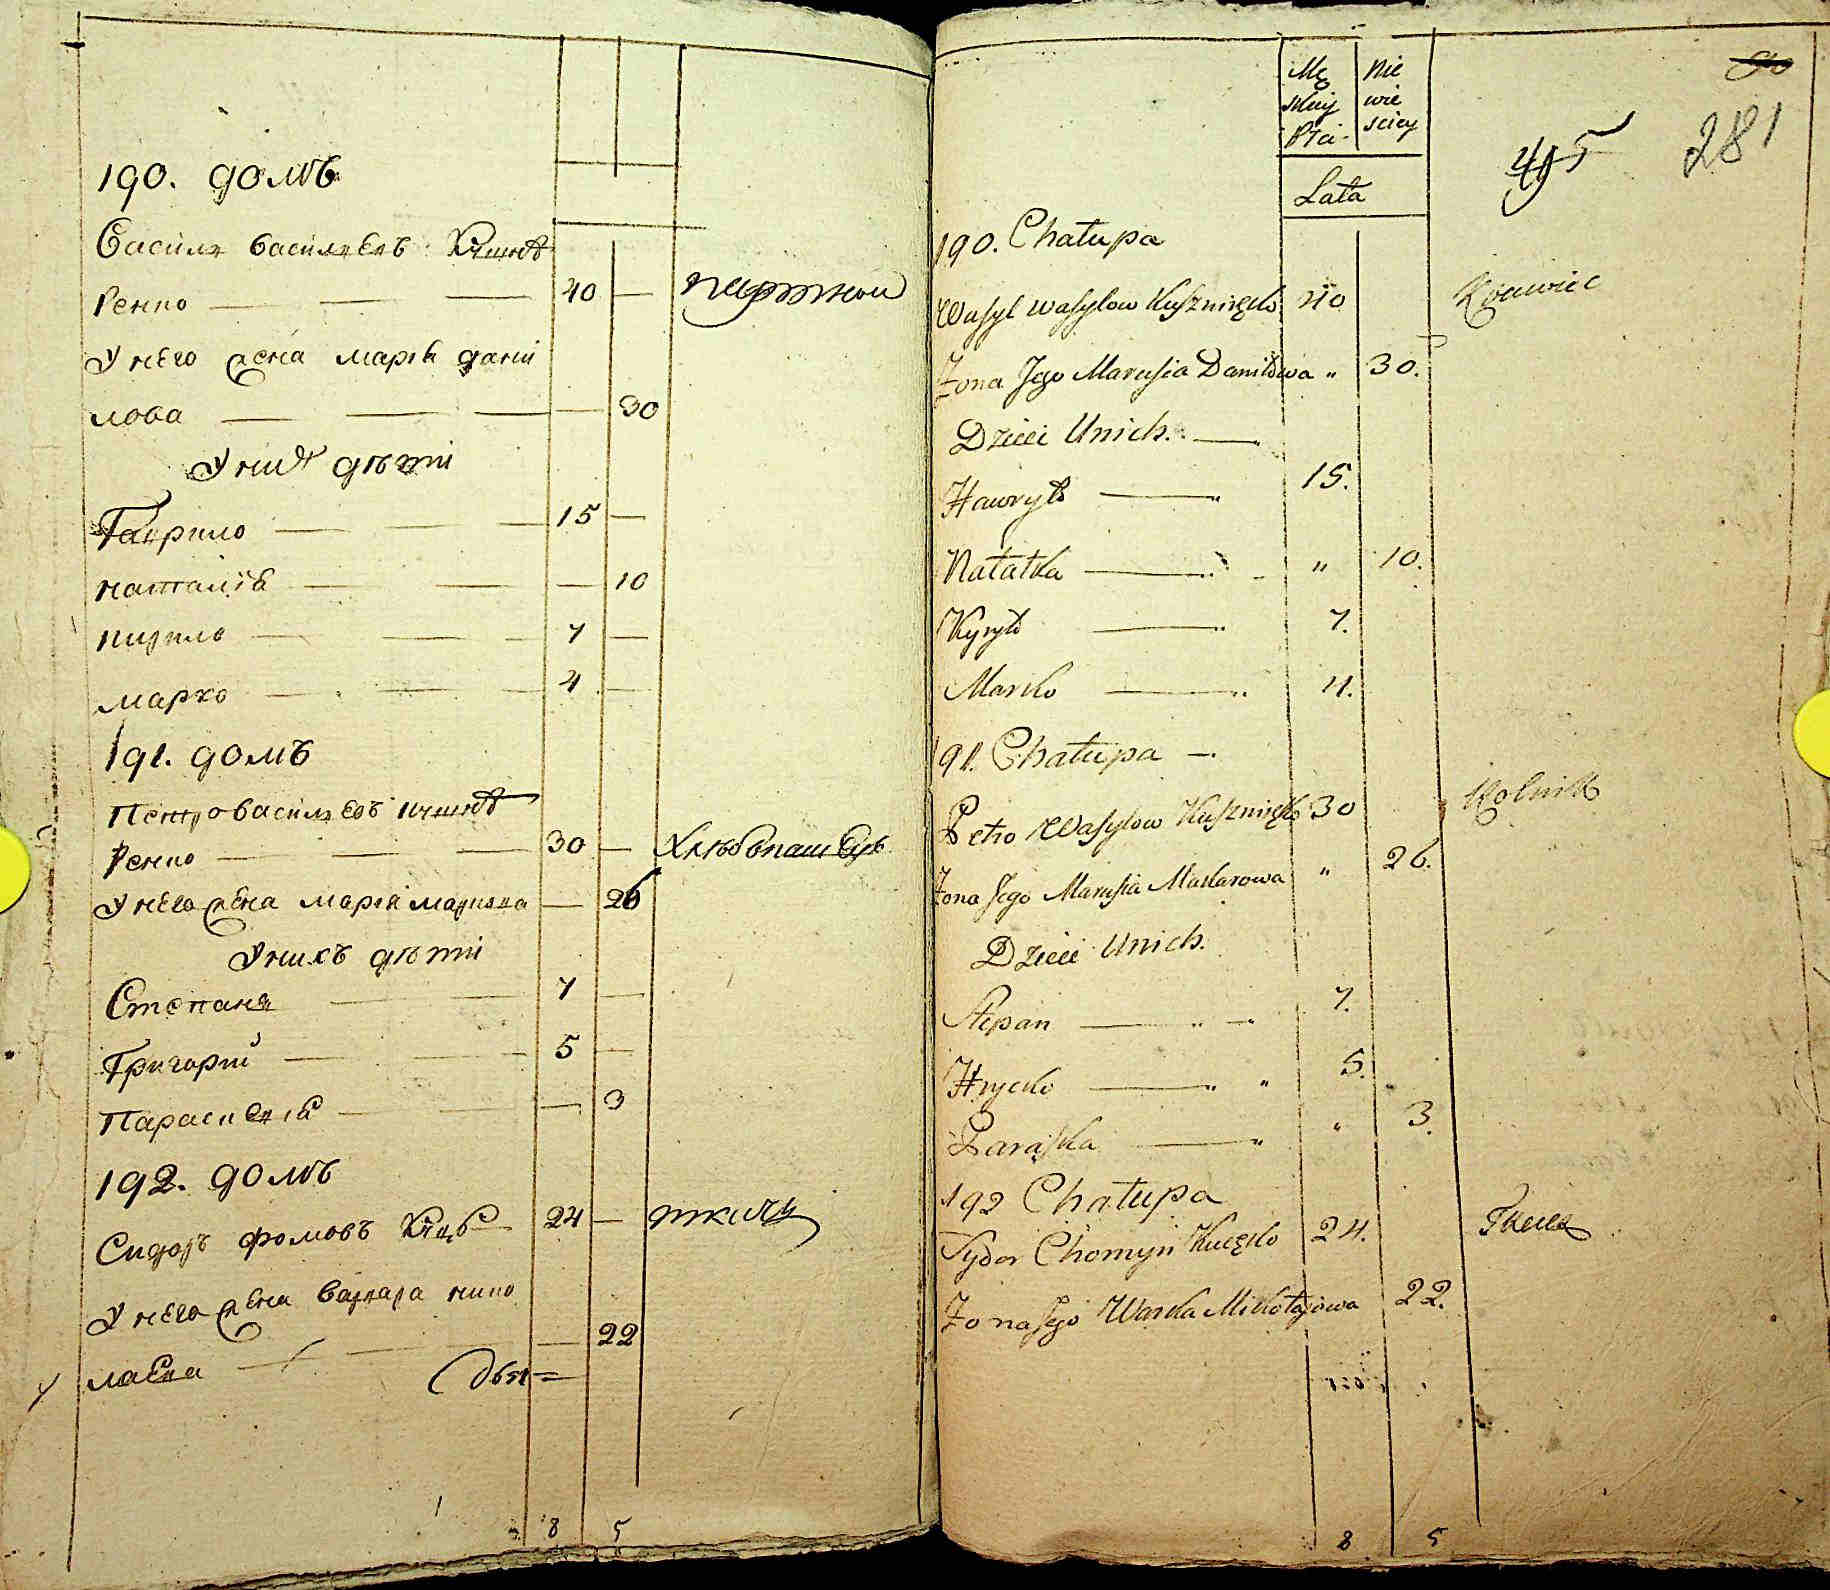 190. домъ
Василь васильевъ Кушнѣ
ренко 40 портной
У него жена марья дани
лова 30
У них дѣти
Гаврило 15
наталія 10
кирило 7
марко 4
191. домъ
Петро васильевъ кушнѣ
ренко 30 хлѣбопашецъ
У него жена марья маркова 26
У нихъ дѣти
Степанъ 7
Григорій 5
Парасковія 3
192. домъ
Сидоръ фомовъ 24 ткачь
У него жена варвара нико
лаева 22
8 5
Mę Nie
skiej wie
Płci sciey
Lata
495 281
190. Chałupa
Wasyl Wasylow Kuszniręko 40 Krawiec
Żona Jego Marusia Daniłowa " 30.
Dzieci Unich.
Hawryło 15.
Natałka " 10.
Kyryło 7.
Marko 4.
191. Chałupa
Petro Wasylow Kuszniręko 30 Rolnik
Żona Jego Marusia Markowa " 26.
Dzieci Unich.
Stepan 7.
Hrycko 5.
Paraska " 3.
192 Chałupa
Sydor Chomyn 24. Tkacz
Żona Jego Warka Mikołajowa 22.
8 5